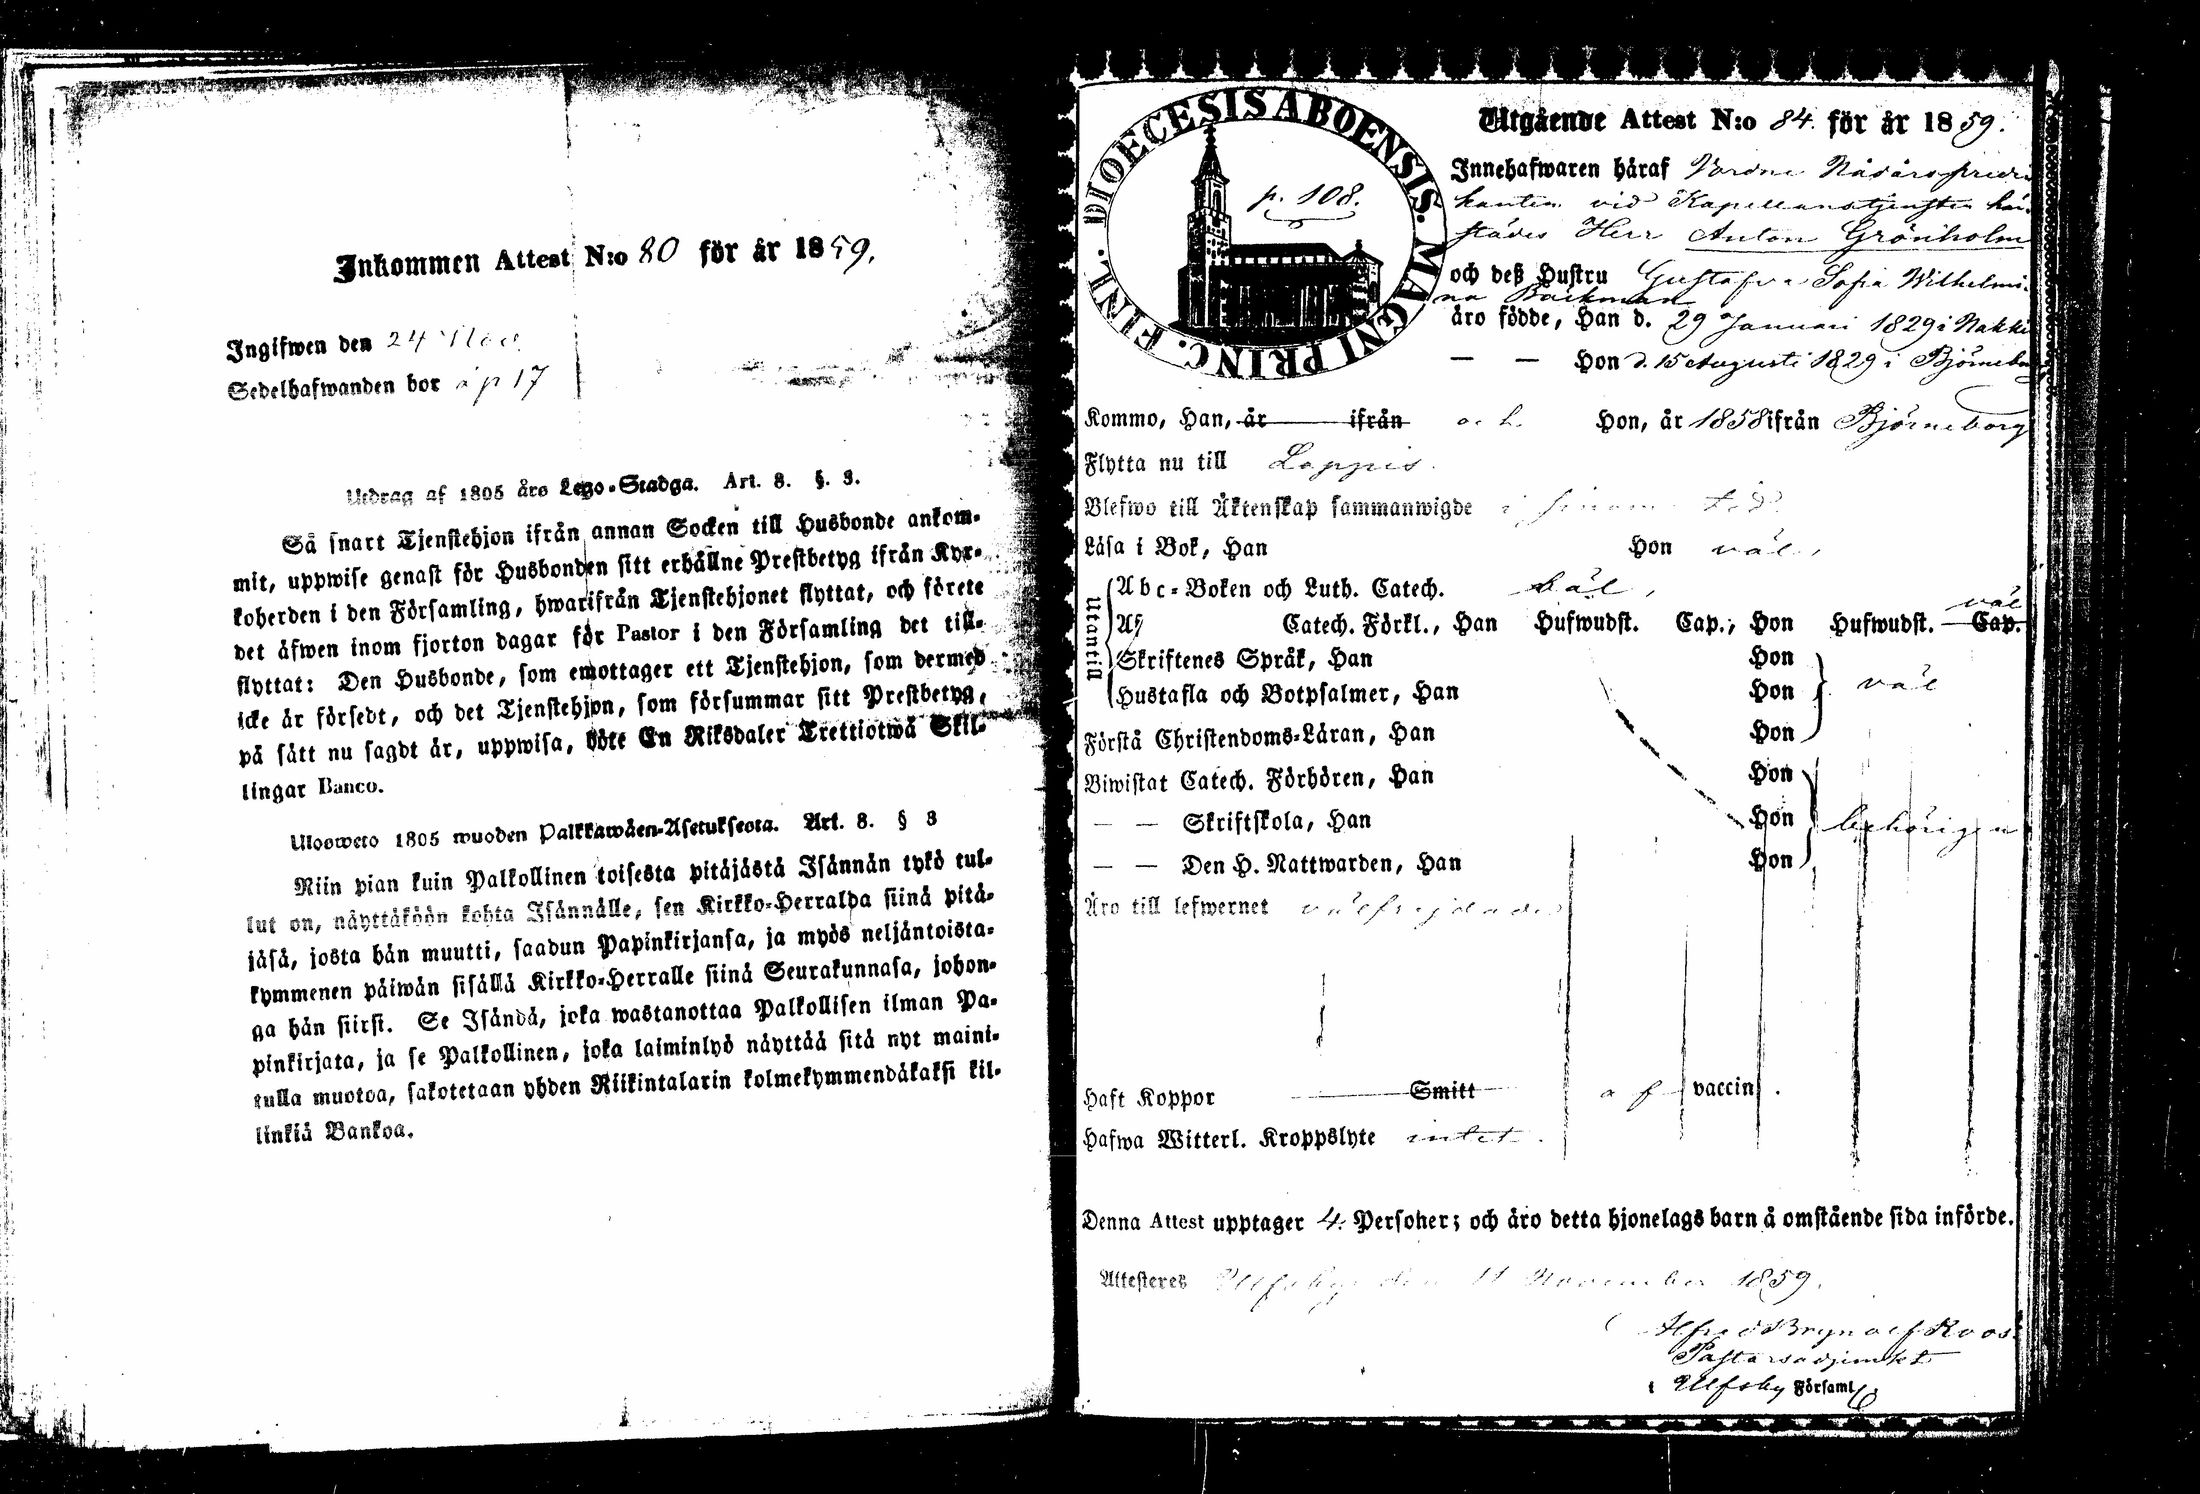 Inkommen Attest N:o 80 för år 1859.
Ingifwen den 24 Nov.
Sedelhafwanden bor å p 17
Utdrag af 1805 års Lego-Stadga. Art. 8. §. 3.
Så snart Tjenstehjon ifrån annan Socken till Husbonde ankom-
mit, uppwise genast för Husbonden sitt erhållne Prestbetyg ifrån Kyr-
koherden i den Församling, hwarifrån Tjenstehjonet flyttat, och förete
det äfwen inom fjorton dagar för Pastor i den Församling det till-
flyttat: Den Husbonde, som emottager ett Tjenstehjon, som dermed
icke är försedt, och det Tjenstehjon, som försummar sitt Prestbetyg,
på sätt nu sagdt är, uppwisa, böte En Riksdaler Trettiotwå Skil-
lingar Banco.
Ulosweto 1805 wuoden Palkkawäen-Asetuksesta. Art. 8. § 3
Niin pian kuin Palkollinen toisesta pitäjästä Isännän tykö tul-
lut on, näyttäköön kohta Isännälle, sen Kirkko-Herralda siinä pitä-
jäsä, josta hän muutti, saadun Papinkirjansa, ja myös neljäntoista-
kymmenen päiwän sisällä Kirkko-Herralle siinä Seurakunnasa, johon-
ga hän siirst. Se Isändä, joka wastanottaa Palkollisen ilman Pa-
pinkirjata, ja se Palkollinen, joka laiminlyö näyttää sitä nyt maini-
tulla muotoa, sakotetaan yhden Riikintalarin kolmekymmendäkaksi kil-
linkiä Bankoa.
DIOECESIS ABOENSIS. MAGNI PRINC. FINL.
p. 108.
Utgående Attest N:o 84. för år 1859.
Innehafwaren häraf Vordne Nådårspredi
kanten vid Kapellanstjensten här-
städes Herr Anton Grönholm
och deß Hustru Gustafva Sofia Wilhelmi-
na Bäckman
äro födde, Han d. 29 Januari 1829 i Nakki
— — Hon d. 15 Augusti 1829 i Björneborg
Kommo, Han, år ifrån och Hon, år 1858 ifrån Björneborg
Flytta nu till Loppis.
Blefwo till Äktenskap sammanwigde i sinom tid
Läsa i Bok, Han Hon väl,
Utantill
Abc-Boken och Luth. Catech. väl,
Af Catech. Förkl., Han Hufwudst. Cap., Hon Hufwudst. Cap. väl
Skriftenes Språk, Han Hon
Hustafla och Botpsalmer, Han Hon väl
Förstå Christendoms-Läran, Han Hon
Biwistat Catech. Förhören, Han Hon
— — Skriftskola, Han Hon behörigen
— — Den H. Nattwarden, Han Hon
Äro till lefwernet välfrejdade
Haft Koppor Smitt af vaccin.
Hafwa Witterl. Kroppslyte intet.
Denna Attest upptager 4. Personer; och äro detta hjonelags barn å omstående sida införde.
Attesteres Ulfsby den 11 November 1859.
Alfred Brynolf Roos
Pastorsadjunkt
i Ulfsby Församl.